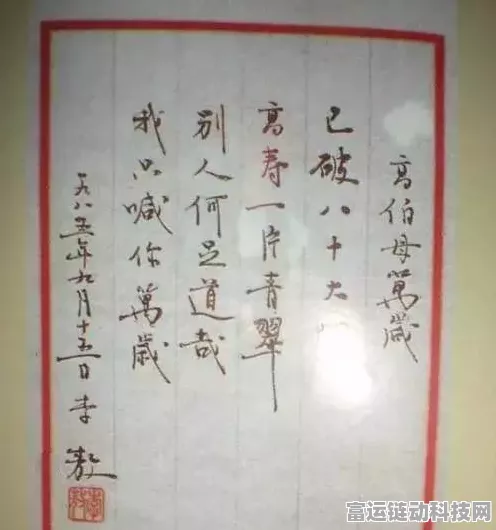 高伯母萬歲
已破八十大
高寿一片青翠
別人何足道哉
我只喊你萬歲
一九八五年九月十五日李敖
富运链动科技网